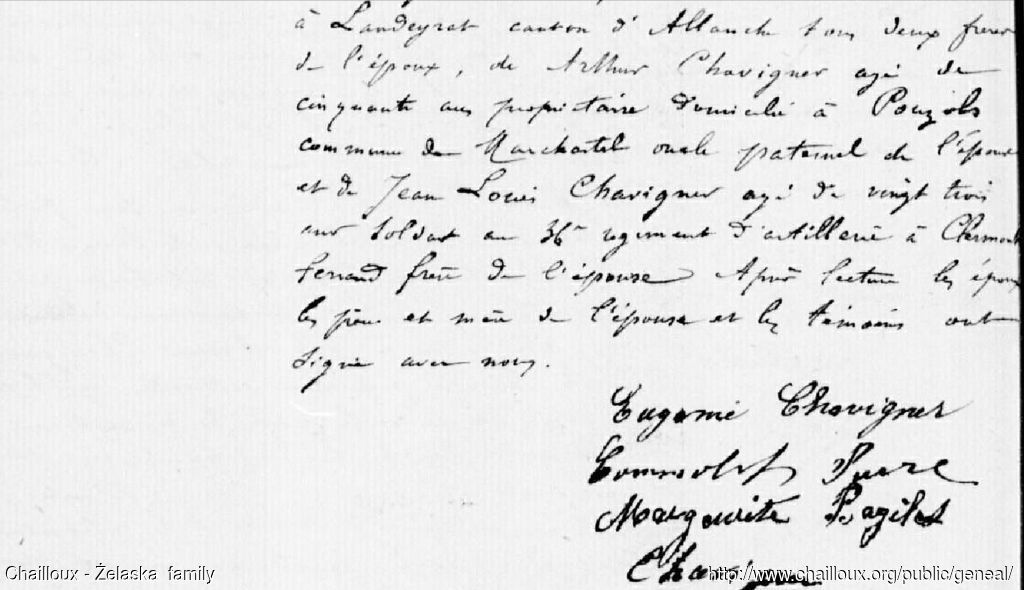 à Landeyrat canton d'Allanche tous deux frères
de l'époux, de Arthur Chavigner agé de
cinquante ans propriétaire domicilié à Pouzols
commune de Marchastel oncle paternel de l'épouse
et de Jean Louis Chavigner agé de vingt trois
ans soldat au 36e regiment d'artillerie à Clermont
Ferrand frère de l'épouse Après lecture les époux
les père et mère de l'épouse et les témoins ont
signé avec nous.
Eugenie Chavigner
Pierre
Marguerite
Chavigner
Chailloux - Želaska family
http://www.chailloux.org/public/geneal/